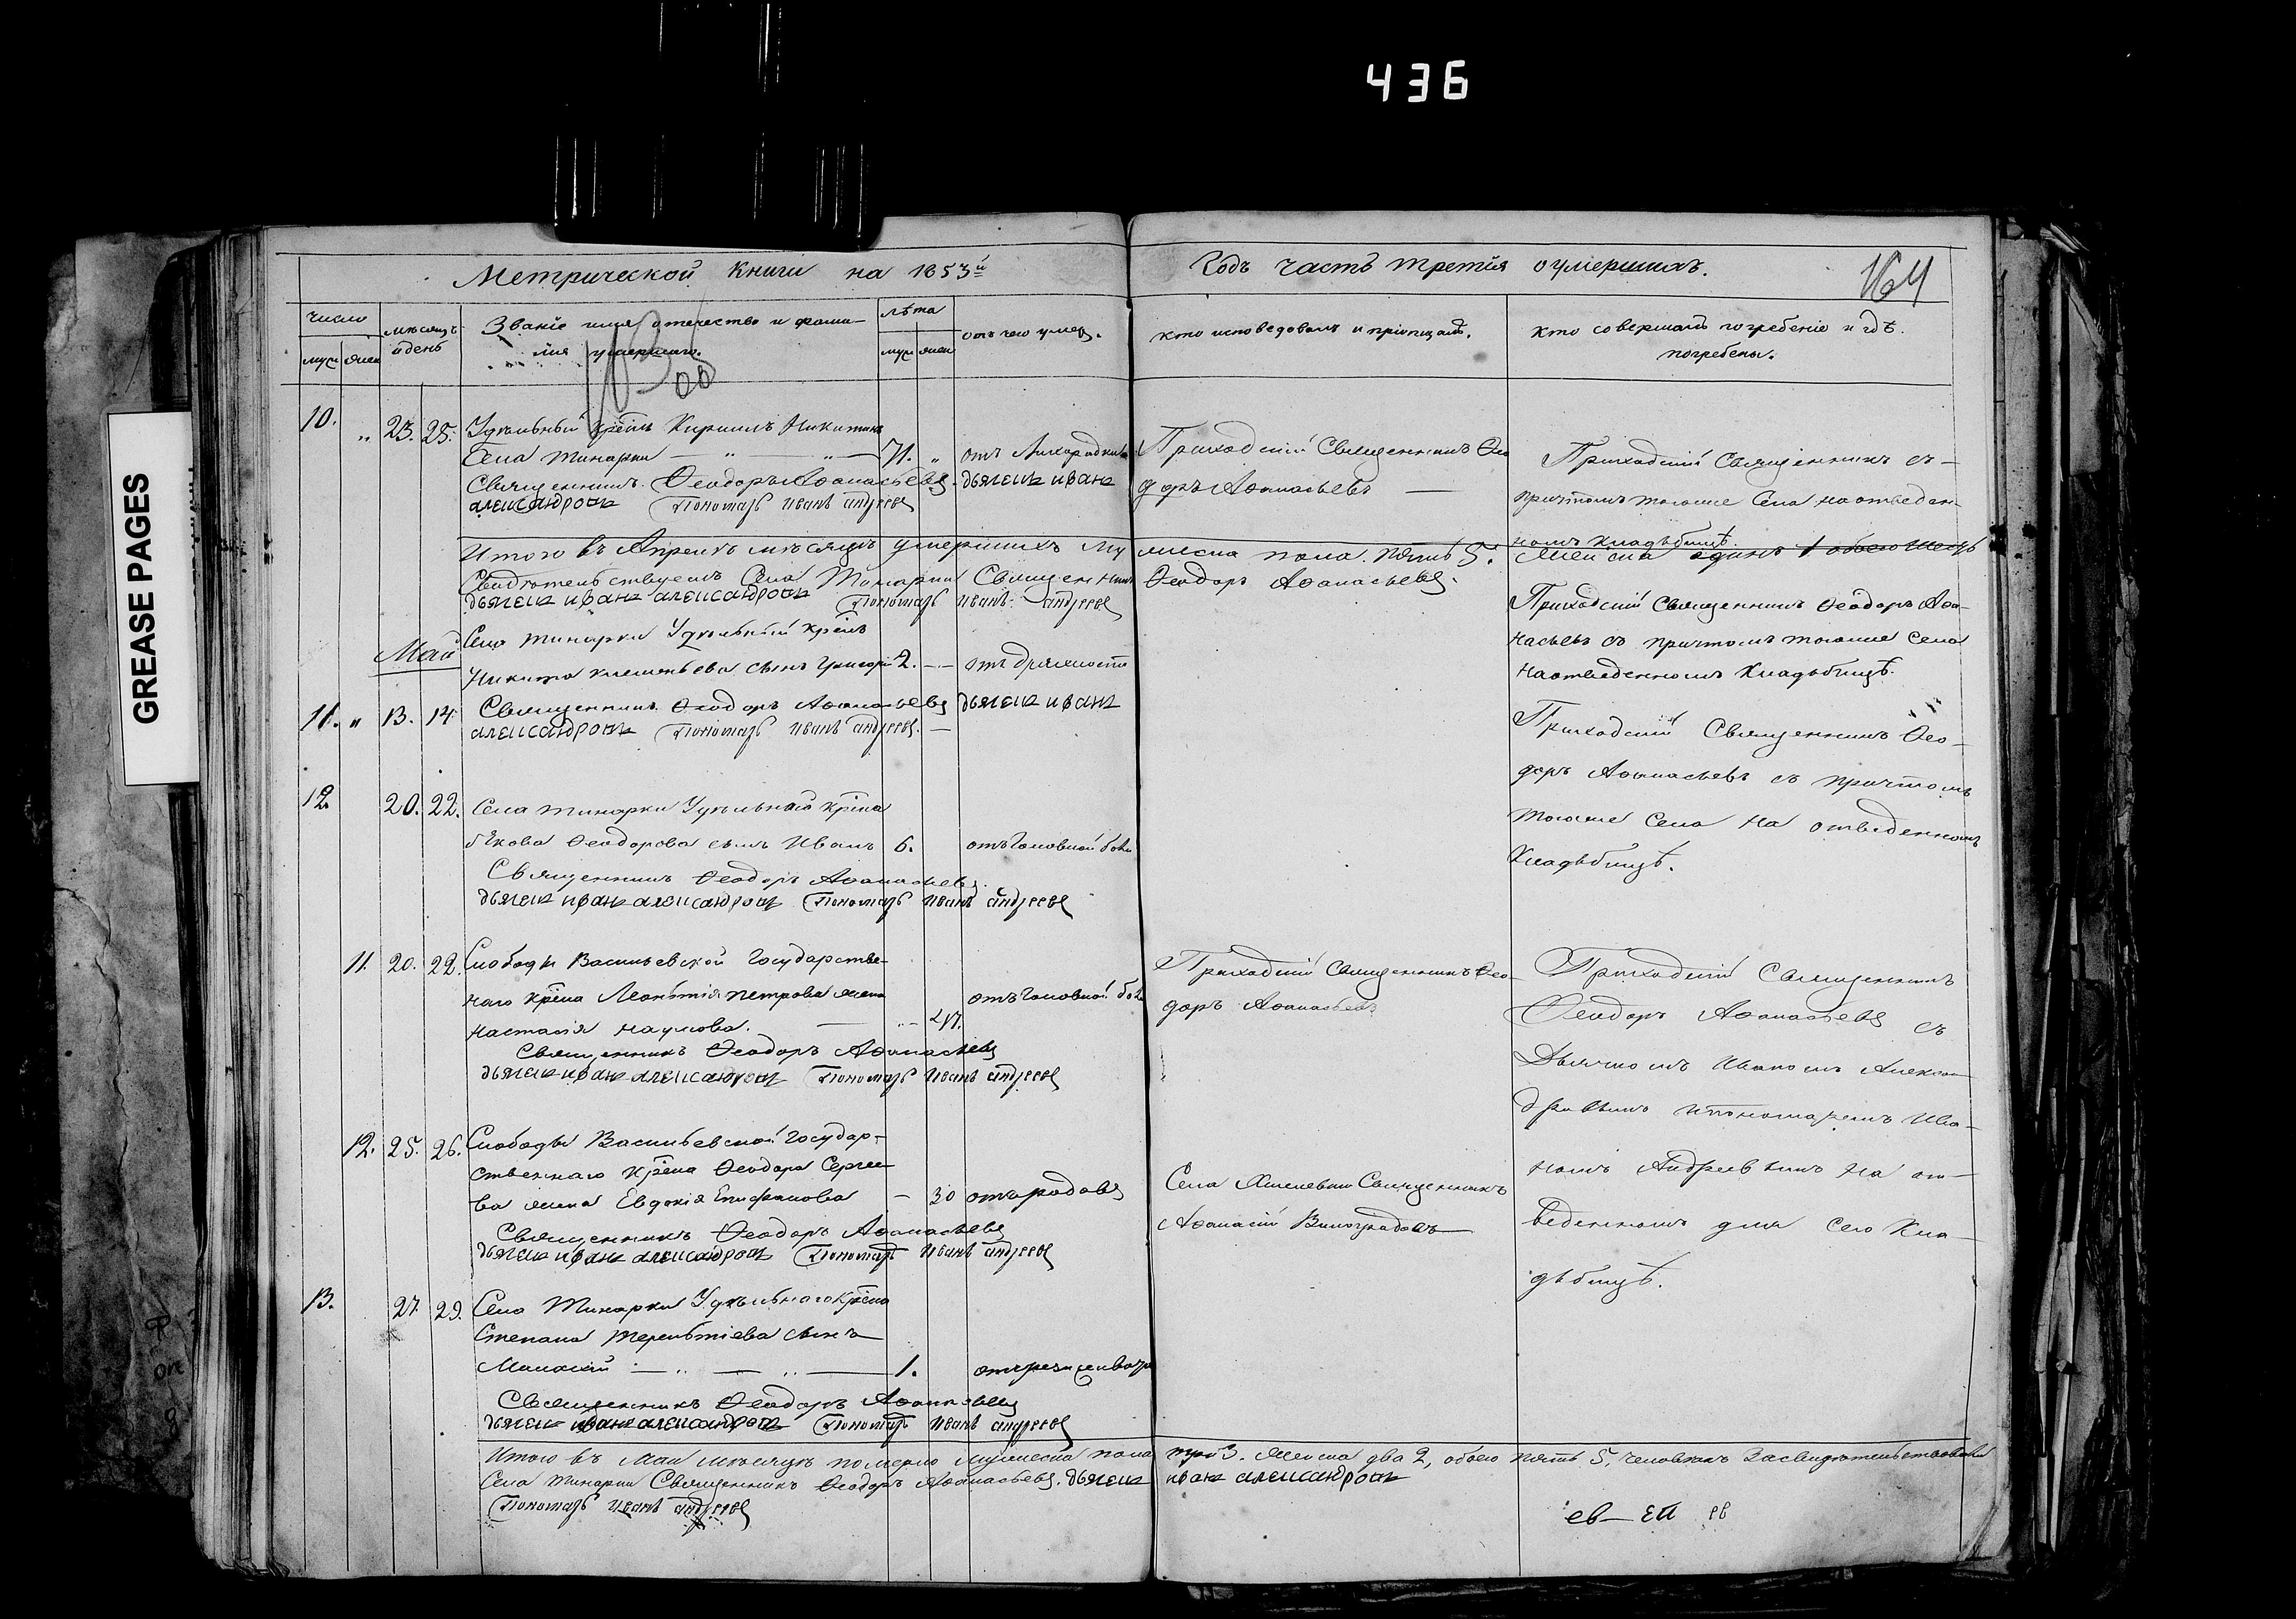 436
GREASE PAGES
Метрической книги на 1853й
Годъ часть третiя оумершихъ.
164
число
муж жен
мѣсяцъ
и день
Званiе имя отечество и фами-
лiя умершаго.
лѣта
муж жен
отъ чего умеръ.
кто исповедовалъ и прiобщалъ.
кто совершалъ погребенiе и гдѣ
погребены.
10. " 23. 25. Удѣльный крѣнъ Кирилъ Никитинъ
Села Тинарки — " — " — 71. " отъ Лихорадки
Священникъ Ѳеодоръ Аѳанасьевъ. дьячекъ иванъ
александровъ Пономарь Иванъ андреевъ
Приходскiй Священникъ Ѳео
доръ Аѳанасьевъ —
Приходскiй Священникъ съ —
причтомъ тогоже Села на отведен-
номъ кладьбищѣ.
Итого въ Апрелѣ мѣсяцѣ умершихъ му жеска пола. пять 5. Женска одинъ 1 обоего шесть
Свидѣтельствуемъ Села Тинарки Священникъ Ѳеодоръ Аѳанасьевъ.
дьячекъ иванъ александровъ Пономарь Иванъ андреевъ
Май
Села Тинарки Удѣльный крѣнъ
Никита Клементьева сынъ Григорiй 2. — — отъ дряхлости
11. " 13. 14. Священникъ Ѳеодоръ Аѳанасьевъ дьячекъ иванъ
александровъ Пономарь Иванъ андреевъ. —
Приходскiй Священникъ Ѳеодоръ Аѳа-
насьевъ съ причтомъ тогоже села
на отведенномъ Кладьбищѣ.
12. 20. 22. Села тинарки Удѣльнаго крѣна
Якова Ѳеодорова сынъ Иванъ 6. отъ Головной боли
Священникъ Ѳеодоръ Аѳанасьевъ.
дьячекъ иванъ александровъ Пономарь Иванъ андреевъ
Приходскiй Священникъ Ѳео-
доръ Аѳанасьевъ съ причтомъ
тогоже Села на отведенномъ
Кладьбищѣ.
11. 20. 22. Слободы Васильевской Государстве-
наго крѣна Леонтiя петрова жена
настасiя наумова. — "—
отъ Головной боли
Священникъ Ѳеодоръ Аѳанасьевъ
дьячекъ иванъ александровъ Пономарь Иванъ андреевъ
Приходскiй Священникъ Ѳео-
доръ Аѳанасьевъ
Приходскiй Священникъ
Ѳеодоръ Аѳанасьевъ съ
Дьячкомъ Иваномъ Алексан-
дровымъ и пономаремъ Ива-
номъ Андреевымъ на от-
веденномъ для сего Кла-
дьбищѣ.
12. 25. 26. Слободы Васильевской Государ-
ственнаго Крѣна Ѳеодора Сергее-
ва жена Евдокiя Епифанова — 30 отъ родовъ
Священникъ Ѳеодоръ Аѳанасьевъ
дьячекъ иванъ александровъ Пономарь Иванъ андреевъ
Села Священникъ
Аѳанасiй Виноградовъ
13. 27. 29. Села Тинарки Удѣльнаго Крѣна
Степана Терентiева сынъ
— " — " — 1.
Священникъ Ѳеодоръ Аѳанасьевъ
дьячекъ иванъ александровъ Пономарь Иванъ андреевъ
Итого въ Маи мѣсяцѣ померло мужеска пола три 3. Женска два 2, обоего пять 5, человѣкъ Засвидѣтельствовали
Села тинарки Священникъ Ѳеодоръ Аѳанасьевъ. дьячекъ иванъ александровъ
Пономарь Иванъ андреевъ